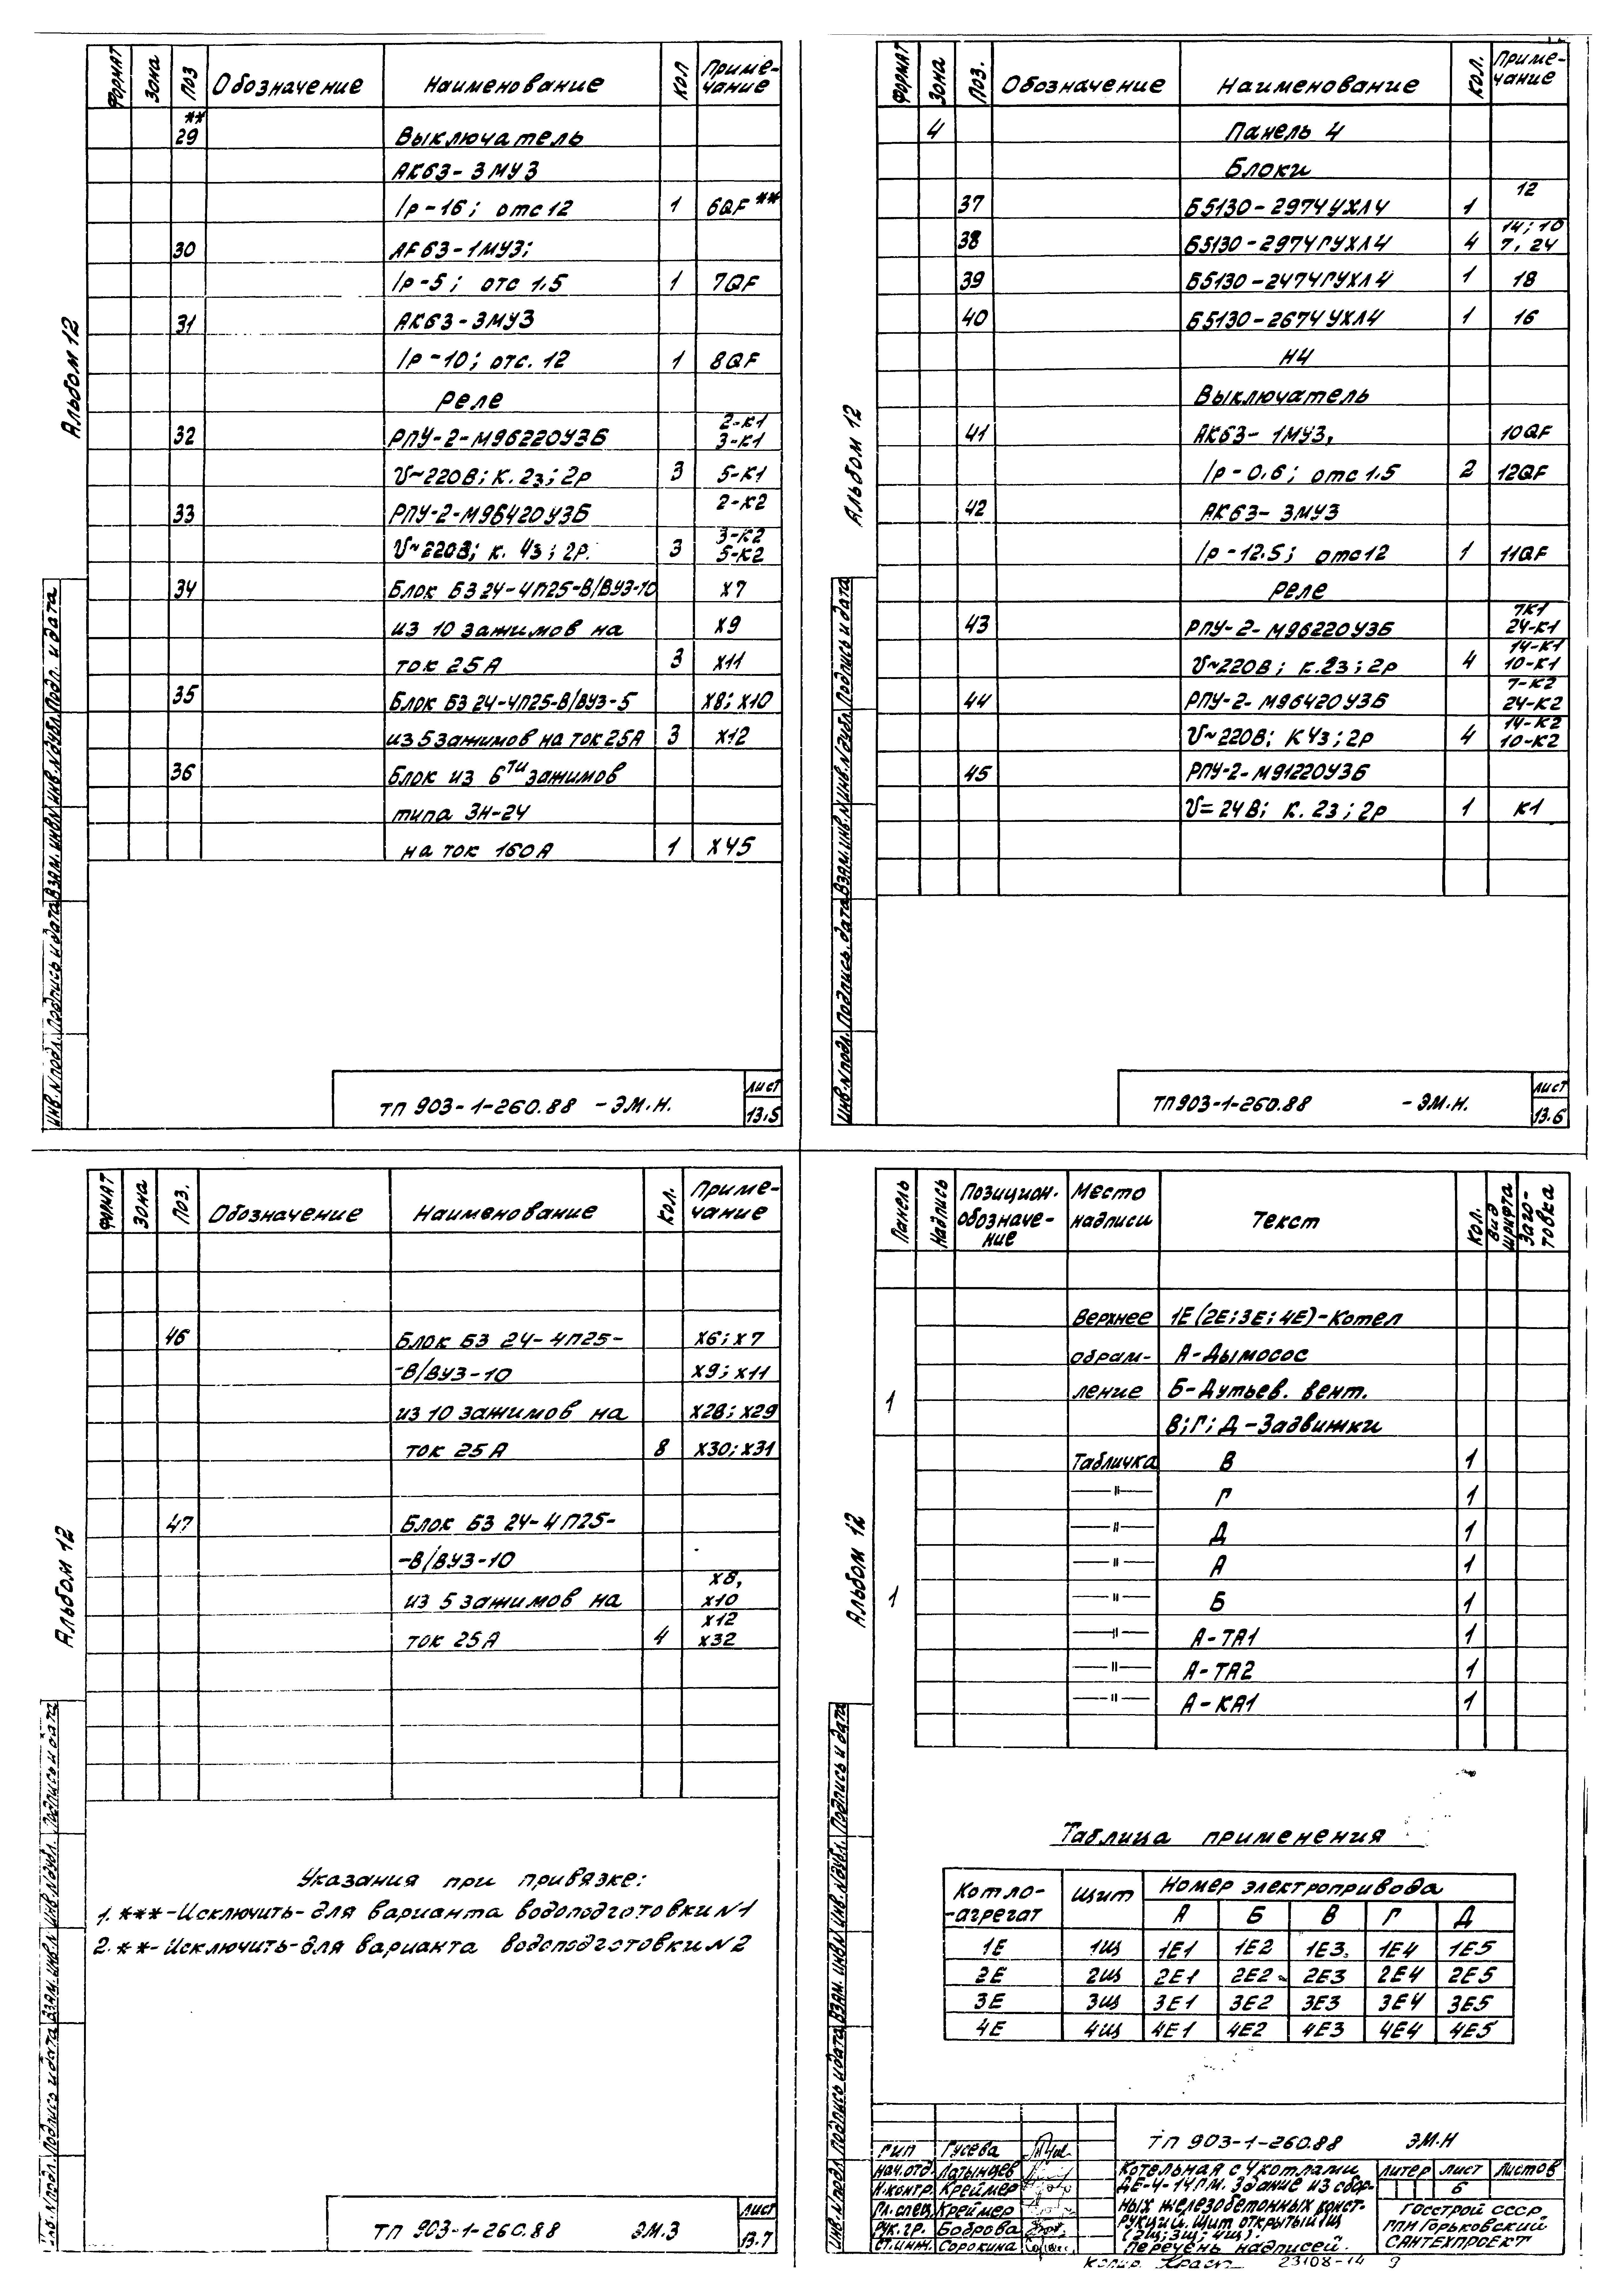 Альбом 12
ФОРМАТ Зона ПОЗ Обозначение Наименование КОЛ Приме-
чание
**
29 Выключатель
АК63-3МУ3
Iр-16; отс 12 1 6QF**
30 АF63-1МУ3;
Iр-5; отс 1.5 1 7QF
31 АК63-3МУ3
Iр-10; отс. 12 1 8QF
Реле
32 РПУ-2-М96220У3Б 2-К1
3-К1
U~220В; К. 2з; 2р 3 5-К1
33 РПУ-2-М96420У3Б 2-К2
U~220В; К. 4з; 2Р. 3 3-К2
5-К2
34 Блок БЗ 24-4П25-В/ВУЗ-10 Х7
из 10 зажимов на Х9
ток 25А 3 Х11
35 Блок БЗ 24-4П25-В/ВУЗ-5 Х8; Х10
из 5 зажимов на ток 25А 3 Х12
36 Блок из 6ти зажимов
типа ЗН-24
на ток 160А 1 Х45
Инв.N подл. Подпись и дата Взам. инв N Инв.N дубл. Подп. и дата
ТП 903-1-260.88 -ЭМ.Н. Лист
13.5
Альбом 12
ФОРМАТ Зона ПОЗ. Обозначение Наименование КОЛ. Приме-
чание
4 Панель 4
Блоки
37 Б5130-2974УХЛ4 1 12
38 Б5130-2974ГУХЛ4 4 14; 10
7, 24
39 Б5130-2474ГУХЛ4 1 18
40 Б5130-2674УХЛ4 1 16
Н4
Выключатель
41 АК63-1МУ3, 10QF
Iр-0.6; отс 1.5 2 12QF
42 АК63-3МУ3
Iр-12.5; отс12 1 11QF
Реле
43 РПУ-2-М96220У3Б 7К1
24-К1
U~220В; К.2з; 2р 4 14-К1
10-К1
44 РПУ-2-М96420У3Б 7-К2
24-К2
U~220В; К4з; 2р 4 14-К2
10-К2
45 РПУ-2-М91220У3Б
U=24В; К. 2з; 2р 1 К1
Инв.N подл. Подпись. дата Взам. инв.N Инв.N дубл. Подпись и дата
ТП903-1-260.88 -ЭМ.Н. Лист
13.6
Альбом 12
ФОРМАТ Зона ПОЗ. Обозначение Наименование КОЛ. Приме-
чание
46 Блок БЗ 24-4П25- Х6; Х7
-В/ВУЗ-10 Х9; Х11
из 10 зажимов на Х28; Х29
ток 25А 8 Х30; Х31
47 Блок БЗ 24-4П25-
-В/ВУЗ-10
из 5 зажимов на Х8,
Х10
ток 25А 4 Х12
Х32
Указания при привязке:
1. ***-Исключить-для варианта водоподготовки N1
2. **-Исключить-для варианта водоподготовки N2
Инв.N подл. Подпись и дата Взам. инв.N Инв.N дубл. Подпись и дата
ТП 903-1-260.88 ЭМ.З Лист
13.7
Альбом 12
Панель Надпись Позицион.
обозначе-
ние Место
надписи Текст Кол. Вид
шрифта Заго-
товка
Верхнее 1Е(2Е;3Е;4Е)-Котел
обрам- А-Дымосос
1 ление Б-Дутьев. вент.
В;Г;Д-Задвижки
Табличка В 1
—"— Г 1
—"— Д 1
—"— А 1
1 —"— Б 1
—"— А-ТА1 1
—"— А-ТА2 1
—"— А-КА1 1
Таблица применения
Котло-
-агрегат Щит Номер электропривода
А Б В Г Д
1Е 1Щ 1Е1 1Е2 1Е3 1Е4 1Е5
2Е 2Щ 2Е1 2Е2 2Е3 2Е4 2Е5
3Е 3Щ 3Е1 3Е2 3Е3 3Е4 3Е5
4Е 4Щ 4Е1 4Е2 4Е3 4Е4 4Е5
Инв.N подл. Подпись и дата Взам. инв.N Инв.N дубл. Подпись и дата
ТП 903-1-260.88 ЭМ.Н
ГИП Гусева
Нач.отд. Латынцев
Н.контр. Креймер
Гл.спец. Креймер
Рук.гр. Боброва
Ст.инж. Сорокина
Котельная с 4 котлами
ДЕ-4-14ГМ. Здание из сбор-
ных железобетонных конст-
рукций. Щит открытый 1Щ
(2Щ; 3Щ; 4Щ).
Перечень надписей.
Литер Лист Листов
6
Госстрой СССР
ГПИ Горьковский
Сантехпроект
Копир. 23108-14 9